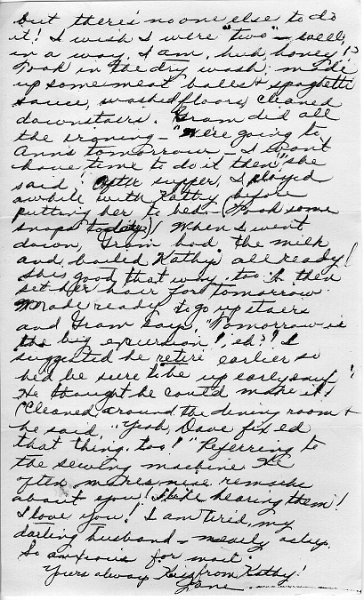 but there's no one else to do
it! I wish I were "two" – really,
in a way I am, huh, honey!
Took in the dry wash made
up some meat balls & spaghetti
sauce, washed floors, cleaned
downstairs. Gram did all
the ironing – "We're going to
Ann's tomorrow – I won't
have time to do it then" she
said! After supper, I played
awhile with Kathy before
putting her to bed – (Took some
snaps today!) When I went
down, Gram had the milk
and boiled Kathy's all ready!
She's good that way, too. I then
set her hair for tomorrow.
Made ready to go upstairs
and Gramp says, "Tomorrow is
the big excursion, eh?" I
suggested he retire earlier so
he'd be sure to be up early
He thought he could make it!
(Cleaned around the dining room &
he said, "Yeah, Dave fixed
that thing, too!" Referring to
the sewing machine. He
often makes nice remarks
about you! I like hearing them!
I love you! I am tired, my
darling husband – nearly asleep.
So anxious for mail.
Yours always. Kiss from Kathy!
Jane